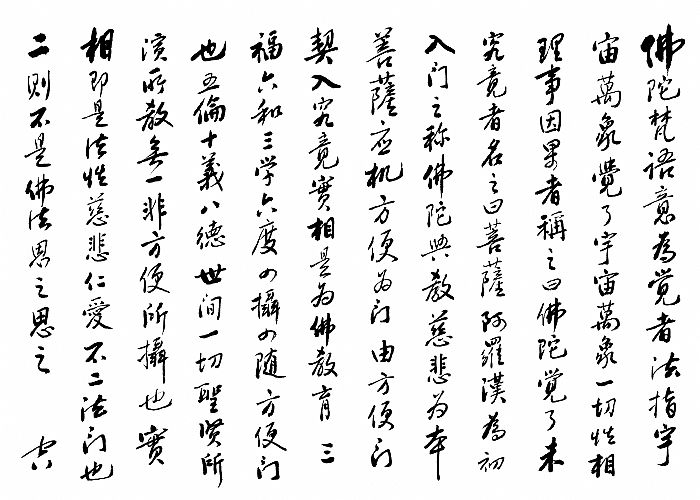 佛陀梵语意為觉者法指宇
宙萬象覺了宇宙萬象一切性相
理事因果者稱之曰佛陀觉了未
究竟者名之曰菩薩阿羅漢為初
入门之称佛陀興教慈悲为本
菩薩应机方便为门由方便门
契入究竟實相是为佛教育三
福六和三学六度四攝四随方便门
也五倫十義八德世间一切聖贤所
演所教無一非方便所攝也實
相即是法性慈悲仁愛不二法门也
二则不是佛法思之思之